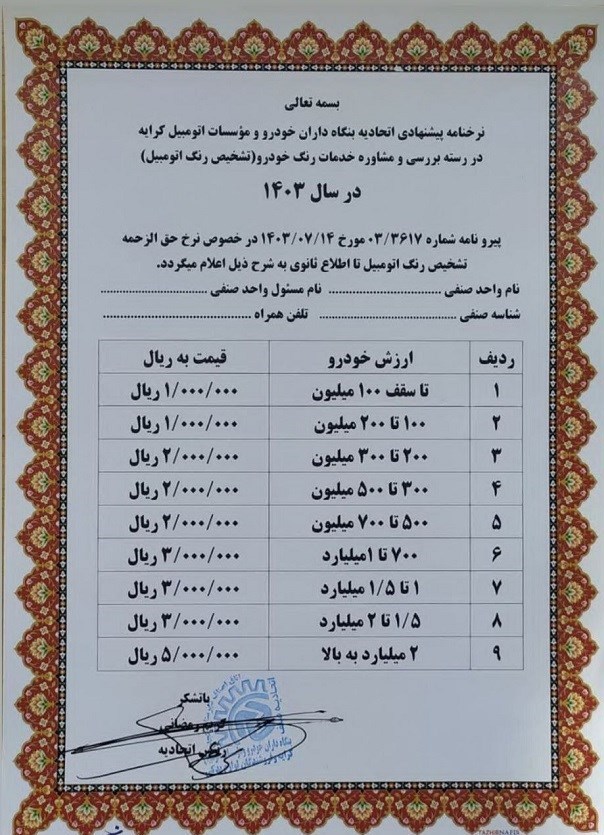 بسمه تعالی
نرخنامه پیشنهادی اتحادیه بنگاه داران خودرو و مؤسسات اتومبیل کرایه
در رسته بررسی و مشاوره خدمات رنگ خودرو(تشخیص رنگ اتومبیل)
در سال ۱۴۰۳
پیرو نامه شماره ۰۳/۳۶۱۷ مورخ ۱۴۰۳/۰۷/۱۴ در خصوص نرخ حق الزحمه
تشخیص رنگ اتومبیل تا اطلاع ثانوی به شرح ذیل اعلام میگردد.
نام واحد صنفی .............................. نام مسئول واحد صنفی ..............................
شناسه صنفی .............................. تلفن همراه ..............................
ردیف ارزش خودرو قیمت به ریال
۱ تا سقف ۱۰۰ میلیون ۱/۰۰۰/۰۰۰ ریال
۲ ۱۰۰ تا ۲۰۰ میلیون ۱/۰۰۰/۰۰۰ ریال
۳ ۲۰۰ تا ۳۰۰ میلیون ۲/۰۰۰/۰۰۰ ریال
۴ ۳۰۰ تا ۵۰۰ میلیون ۲/۰۰۰/۰۰۰ ریال
۵ ۵۰۰ تا ۷۰۰ میلیون ۲/۰۰۰/۰۰۰ ریال
۶ ۷۰۰ تا ۱میلیارد ۳/۰۰۰/۰۰۰ ریال
۷ ۱ تا ۱/۵ میلیارد ۳/۰۰۰/۰۰۰ ریال
۸ ۱/۵ تا ۲ میلیارد ۳/۰۰۰/۰۰۰ ریال
۹ ۲ میلیارد به بالا ۵/۰۰۰/۰۰۰ ریال
باتشکر
رمضانی
اتحادیه